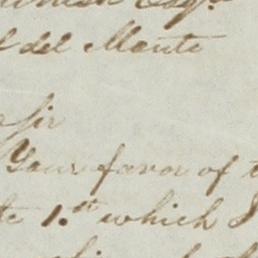 Esqr.
l del Monte
Sir
Your favor of t
te 1.st which I